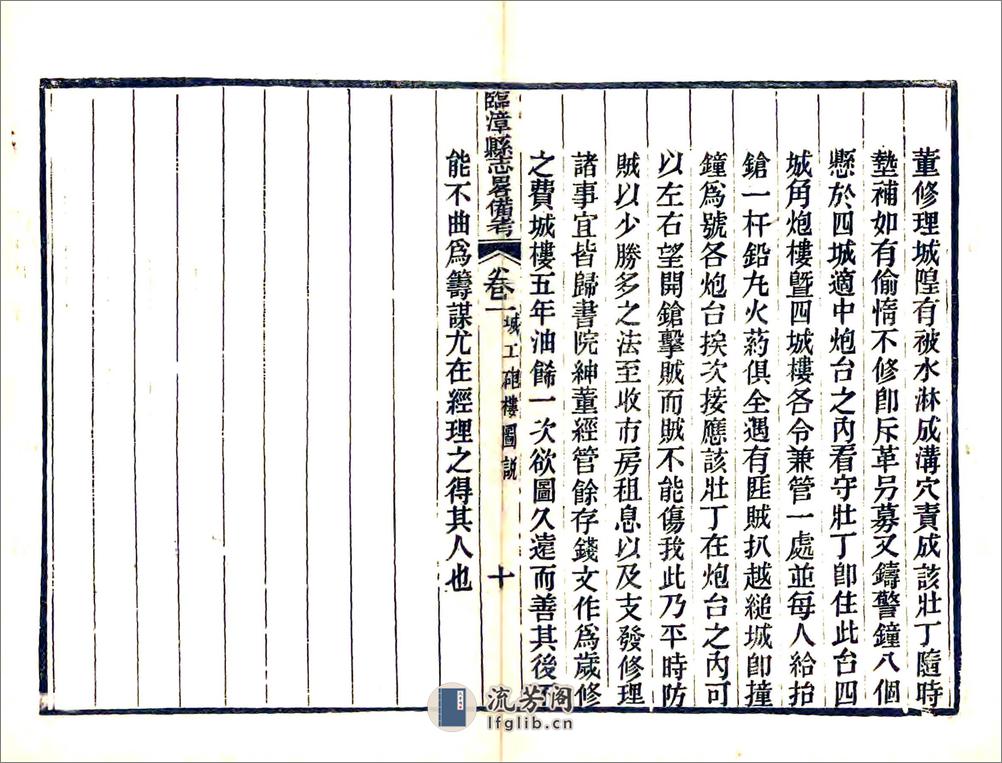 董修理城隍有被水淋成溝穴責成該壯丁隨時
墊補如有偷惰不修卽斥革另募又鑄警鐘八個
懸於四城適中炮台之內看守壯丁卽住此台四
城角炮樓暨四城樓各令兼管一處並每人給抬
鎗一杆鉛丸火葯俱全遇有匪賊扒越縋城卽撞
鐘爲號各炮台挨次接應該壯丁在炮台之內可
以左右望開鎗擊賊而賊不能傷我此乃平時防
賊以少勝多之法至收市房租息以及支發修理
諸事宜皆歸書院紳董經管餘存錢文作爲歲修
之費城樓五年油餙一次欲圖久遠而善其後
臨漳縣志畧備考
卷二
城工砲樓圖說
十
能不曲爲籌謀尤在經理之得其人也
流芳阁
lfglib.cn